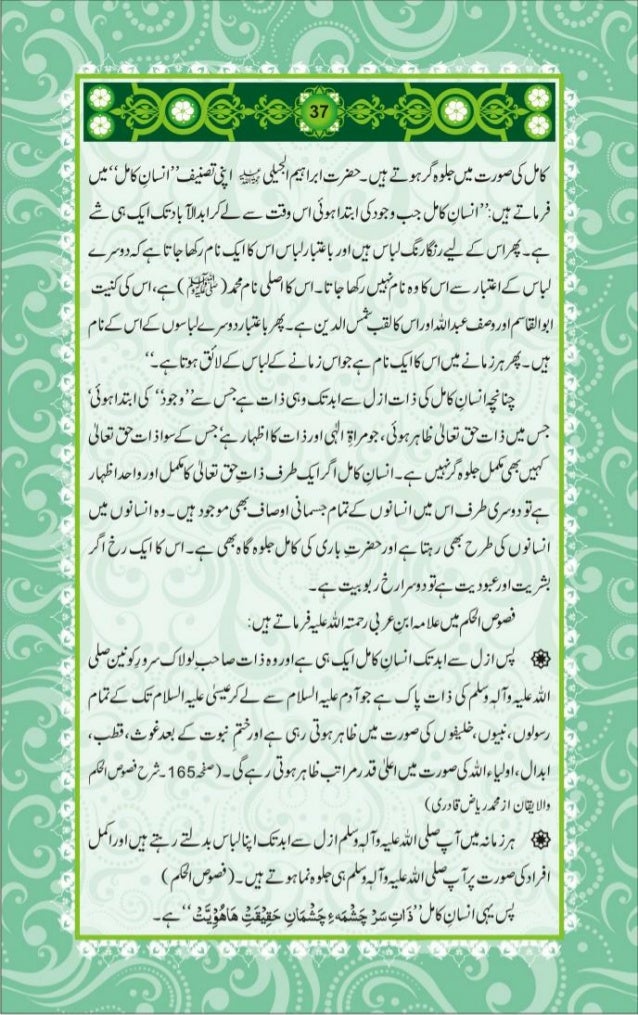 37
کامل کی صورت میں جلوہ گر ہوتے ہیں۔ حضرت ابراہیم الجیلی رحمتہ اللہ علیہ اپنی تصنیف ’’انسانِ کامل‘‘ میں
فرماتے ہیں: ’’انسانِ کامل جب وجود کی ابتدا ہوئی اس وقت سے لے کر ابدالآباد تک ایک ہی شے
ہے۔ پھر اس کے لیے رنگا رنگ لباس ہیں اور باعتبار لباس اس کا ایک نام رکھا جاتا ہے کہ دوسرے
لباس کے اعتبار سے اس کا وہ نام نہیں رکھا جاتا۔ اس کا اصلی نام محمد (ﷺ) ہے، اس کی کنیت
ابوالقاسم اور وصف عبداللہ اور اس کا لقب شمس الدین ہے۔ پھر باعتبار دوسرے لباسوں کے اس کے نام
ہیں۔ پھر ہر زمانے میں اس کا ایک نام ہے جو اس زمانے کے لباس کے لائق ہوتا ہے۔‘‘
چنانچہ انسانِ کامل کی ذات ازل سے ابد تک وہی ذات ہے جس سے ’’وجود‘‘ کی ابتدا ہوئی‘
جس میں ذات حق تعالیٰ ظاہر ہوئی، جو مراۃِ الٰہی اور ذات کا اظہار ہے‘ جس کے سوا ذات حق تعالیٰ
کہیں بھی مکمل جلوہ گر نہیں ہے۔ انسانِ کامل اگر ایک طرف ذاتِ حق تعالیٰ کا مکمل اور واحد اظہار
ہے تو دوسری طرف اس میں انسانوں کے تمام جسمانی اوصاف بھی موجود ہیں۔ وہ انسانوں میں
انسانوں کی طرح بھی رہتا ہے اور حضرتِ باری کی کامل جلوہ گاہ بھی ہے۔ اس کا ایک رخ اگر
بشریت اور عبودیت ہے تو دوسرا رخ ربوبیت ہے۔
فصوص الحکم میں علامہ ابنِ عربی رحمتہ اللہ علیہ فرماتے ہیں:
پس ازل سے ابد تک انسانِ کامل ایک ہی ہے اور وہ ذات صاحبِ لولاک سرورِ کونین صلی
اللہ علیہ وآلہٖ وسلم کی ذات پاک ہے جو آدم علیہ السلام سے لے کر عیسیٰ علیہ السلام تک کے تمام
رسولوں، نبیوں، خلیفوں کی صورت میں ظاہر ہوتی رہی ہے اور ختمِ نبوت کے بعد غوث، قطب،
ابدال، اولیاء اللہ کی صورت میں اعلیٰ قدر مراتب ظاہر ہوتی رہے گی۔ (صفحہ 165۔ شرح فصوص الحکم
والایقان از محمد ریاض قادری)
ہر زمانہ میں آپ صلی اللہ علیہ وآلہٖ وسلم ازل سے ابد تک اپنا لباس بدلتے رہتے ہیں اور اکمل
افراد کی صورت پر آپ صلی اللہ علیہ وآلہٖ وسلم ہی جلوہ نما ہوتے ہیں۔ (فصوص الحکم)
پس یہی انسانِ کامل ’’ذَاتِ سَرْ چَشْمَہءِ چَشْمَانِ حَقِیْقَتْ ھَاھُوِیَّتْ‘‘ ہے۔